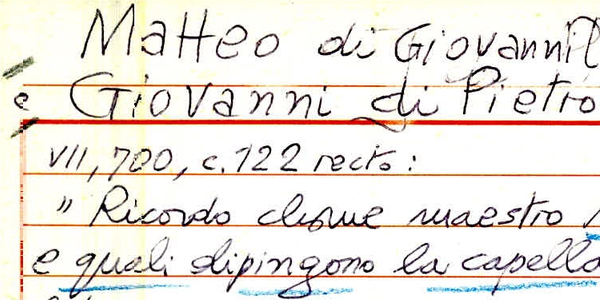 Matteo di Giovanni
e Giovanni di Pietro
VII, 700, c. 122 recto:
" Ricordo chome maestro
e quali dipingono la capella